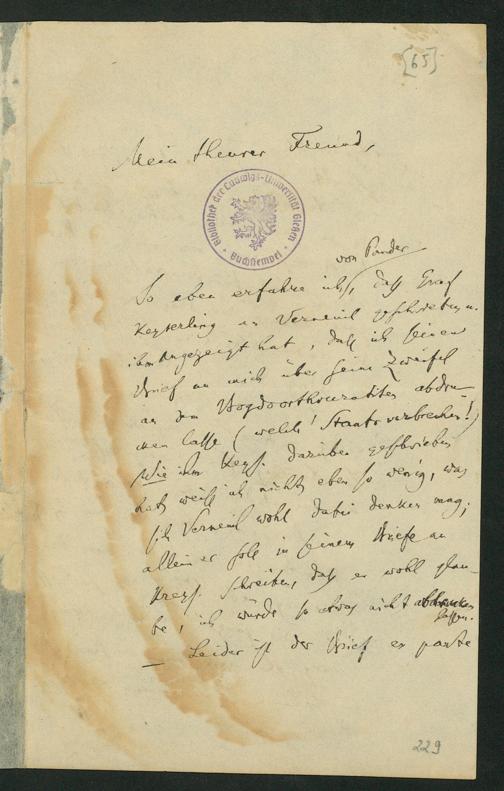 [65]
Mein theurer Freund,
Bibliothek der Ludwigs-Universität Gießen
Buchstempel
von Pander
So eben erfahre ich, daß Graf
Keyserling an Verneuil geschrieben u.
ihm angezeigt hat, daß ich seinen
Brief an mich über seine Zweifel
an den abdru-
cken lasse (welch' Staatsverbrechen!)
Wie ihm Keys. darüber geschrieben
hat weiß ich nicht eben so wenig, was
sich Verneuil wohl dafür denken mag;
allein er soll in seinem Briefe an
Keys. schreiben, daß er wohl glau-
be, ich würde so etwas nicht abdrucken
lassen.
— Leider ist der Brief
229